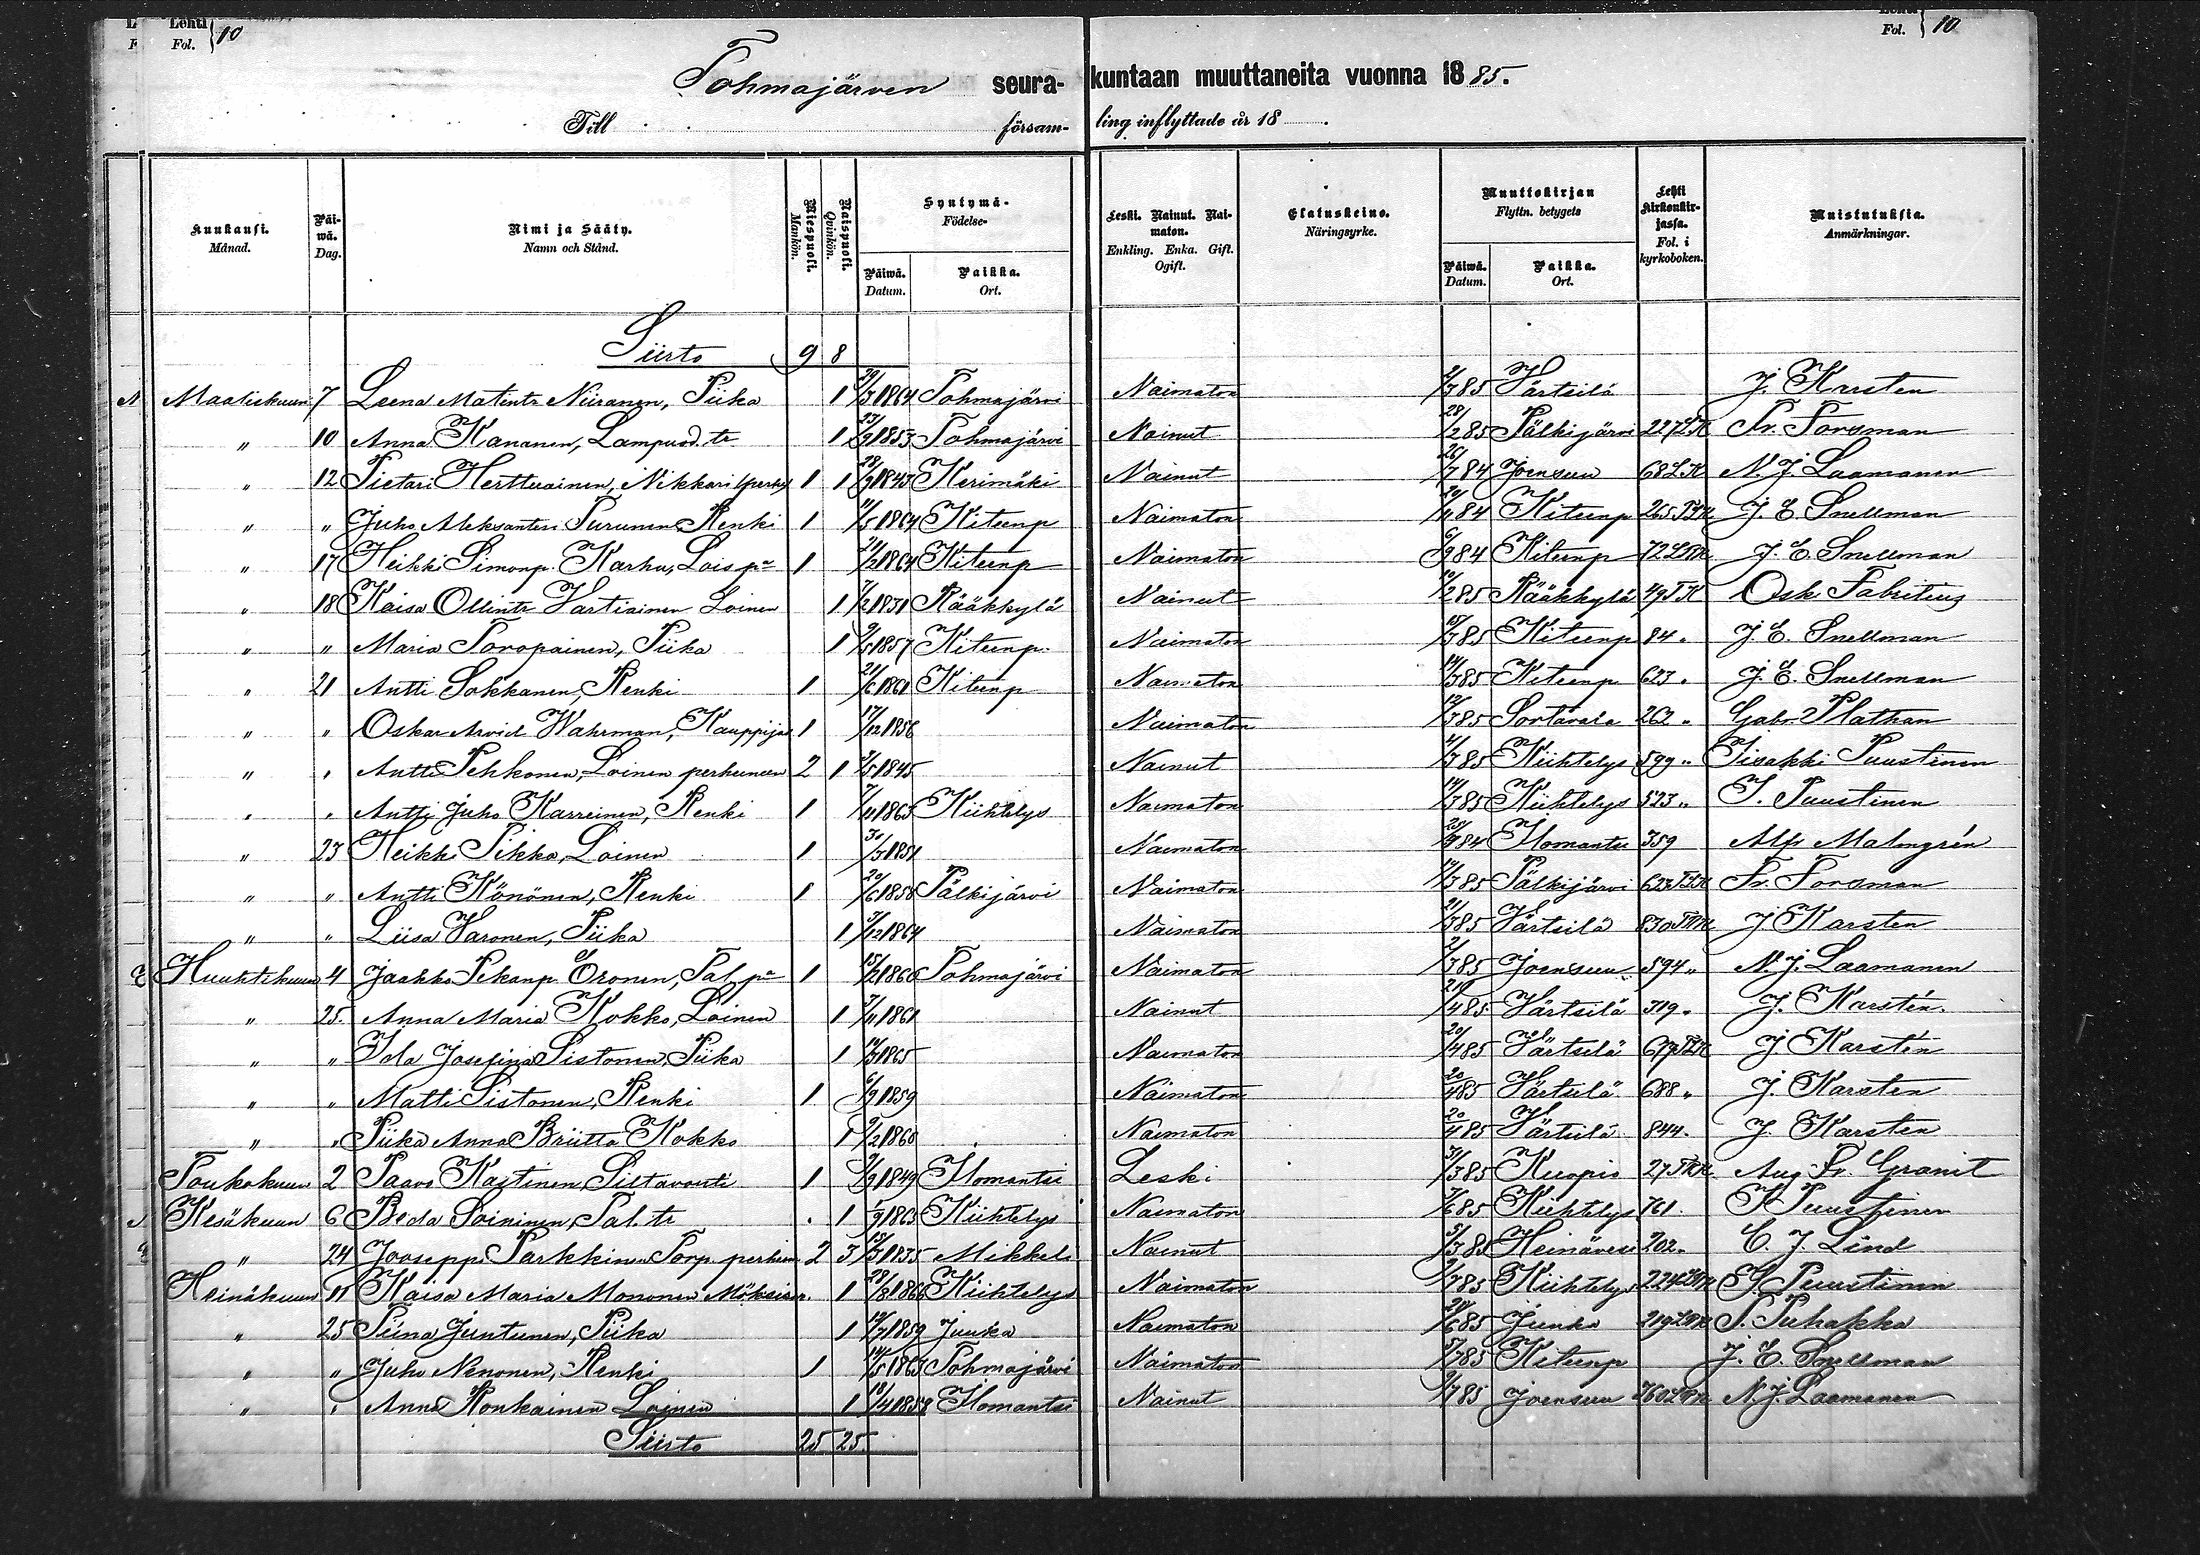 Lehti Fol. 10 Lehti Fol. 10
Tohmajärven seura- kuntaan muuttaneita vuonna 1885.
Till försam- ling inflyttade år 18
Kuukausi. Månad. Päiwä. Dag. Nimi ja Sääty. Namn och Stånd. Miespuoli. Mankön. Naispuoli. Qvinkön. Syntymä- Födelse- Päiwä. Datum. Paikka. Ort. Leski. Nainut. Naimaton. Enkling. Enka. Gift. Ogift. Elatuskeino. Näringsyrke. Muuttokirjan Flyttn. betygets Päiwä. Datum. Paikka. Ort. Lehti Kirkonkirjassa. Fol. i kyrkoboken. Muistutuksia. Anmärkningar.
Siirto 9 8
Maaliskuun 7 Leena Matintr Niiranen, Piika 1 29/3 1864 Tohmajärvi Naimaton 2/3 85 Värtsilä J. Karsten
" 10 Anna Kananen, Lampuod. tr 1 1853 Tohmajärvi Nainut 28/2 85 Pälkijärvi 227 Fr. Forsman
" 12 Pietari Herttuainen, Nikkari 1 1 28/9 1843 Kerimäki Nainut 26/7 84 Joensuu 68 L.K N. J. Laamanen
" " Juho Aleksanteri Purunen, Renki 1 11/5 1864 Kiteenp Naimaton 84 Kiteenp 265 J. E. Snellman
" 17 Heikki Simonp. Karhu, Lois pa 1 21/2 1864 Kiteenp Naimaton 6/9 84 Kiteenp 72 J. E. Snellman
" 18 Kaisa Ollintr Vartiainen Loinen 1 7/2 1831 Rääkkylä Nainut 10/2 85 Rääkkylä 49 Osk Fabritius
" " Maria Toropainen, Piika 1 9/5 1857 Kiteenp. Naimaton 15/3 85 Kiteenp 84 " J. E. Snellman
" 21 Antti Sokkanen, Renki 1 21/6 1861 Kiteenp Naimaton 14/3 85 Kiteenp 623 " J. E. Snellman
" " Oskar Arvid Wahrman, Kauppijas 1 17/12 1856 Naimaton 12/3 85 Sortavala 262 " Gabr. Plathan
" " Antti Pehkonen, Loinen perheineen 2 1 1845 Nainut 4/3 85 Kiihtelys 599 " Iisakki Puustinen
" " Antti Juho Karreinen, Renki 1 7/11 1865 Kiihtelys Naimaton 14/3 85 Kiihtelys 523 " I. Puustinen
" 23 Heikki Pikko, Loinen 1 30/3 1851 Naimaton 84 Ilomantsi 359 Alfr Malmgrén
" " Antti Könönen, Renki 1 20/6 1858 Pälkijärvi Naimaton 14/3 85 Pälkijärvi 623 Fr. Forsman
" " Liisa Varonen, Piika 1 3/12 1864 Naimaton 21/3 85 Värtsilä 830 J Karsten
Huuhtikuun 4 Jaakko Pekanp Eronen, Pal pa 1 15/2 1860 Tohmajärvi Naimaton 2/3 85 Joensuu 594 " N. J. Laamanen
" 25. Anna Maria Kokko, Loinen 1 3/11 1861 Nainut 4 85 Värtsilä 319 " J. Karstén.
" " Ida Josefina Sistonen, Piika 1 14/3 1865 Naimaton 20/4 85 Värtsilä J Karstén
" " Matti Sistonen, Renki 1 6/9 1859 Naimaton 20/4 85 Värtsilä 688 " J. Karsten
" " Piika Anna Briitta Kokko 1 9/2 1860 Naimaton 20/4 85 Värtsilä 844 " J. Karsten
Toukokuun 2 Paavo Kajtinen, Siltavouti 1 1849 Ilomantsi Leski 31/3 85 Kuopio 27 Aug Fr. Granit
Kesäkuun 6 Beda Soininen, Pal. tr 1 9 1863 Kiihtelys Naimaton 7/6 85 Kiihtelys 161 I Puustinen
" 24 Jooseppi Parkkinen Torp. perhein. 2 3 15/3 1835 Mikkeli Nainut 5/3 85 Heinävesi 202 " C. J. Lind
Heinäkuun 11 Kaisa Maria Mononen 1 29/8 1866 Kiihtelys Naimaton 85 Kiihtelys 224 I. Puustinen
" 25 Piina Juntunen, Piika 1 14/7 1859 Juuka Naimaton 85 Juuka 219 S. Puhakka
" " Juho Nenonen, Renki 1 14/5 1863 Tohmajärvi Naimaton 5/7 85 Kiteenp J. E. Snellman
" " Anna Ronkainen Loinen 1 18/4 1858 Ilomantsi Nainut 9/7 85 Joensuu N. J. Laamanen
Siirto 25 25